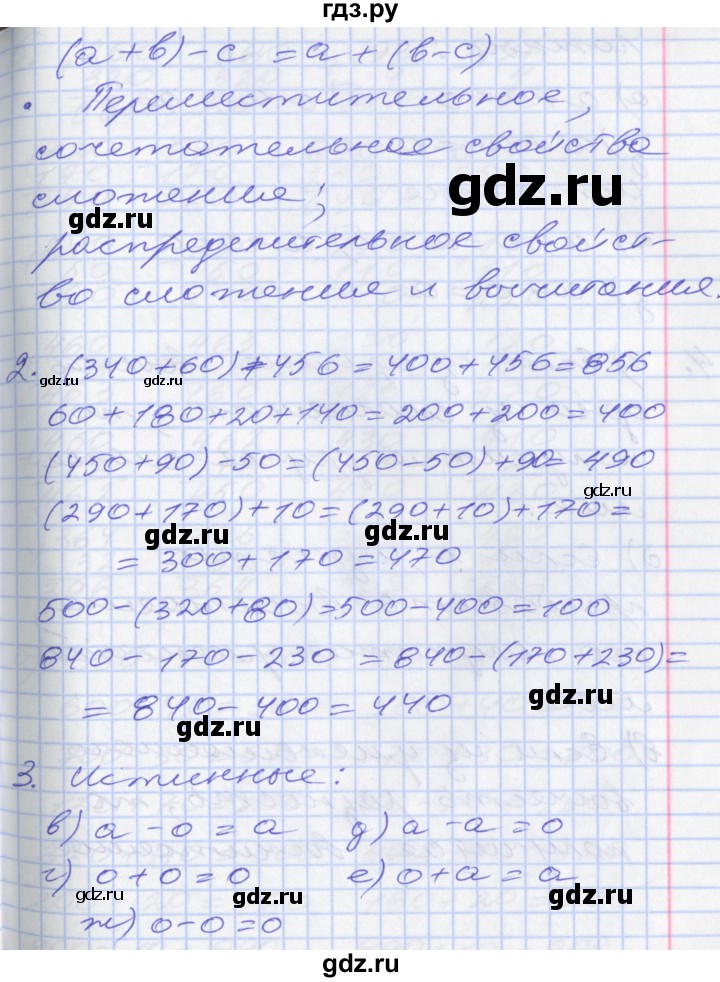 гдз.ру
(а+в)-с = а+(в-с)
• Переместительное,
сочетательное свойства
gdz.ru
сложения;
gdz.ru
распределительное свойст-
во сложения и вычитания.
2. (340+60)+456=400+456=856
gdz.ru gdz.ru
60+180+20+140=200+200=400
(450+90)-50=(450-50)+90=490
gdz.ru
(290+170)+10=(290+10)+170=
gdz.ru gdz.ru
=300+170=470
500-(320+80)=500-400=100
840-170-230 =840-(170+230)=
gdz.ru
=840-400=440
gdz.ru
3. Истинные:
в) а-0=а д) а-а=0
г) 0+0=0 е) 0+а=а
gdz.ru gdz.ru gdz.ru
ж) 0-0=0
gdz.ru